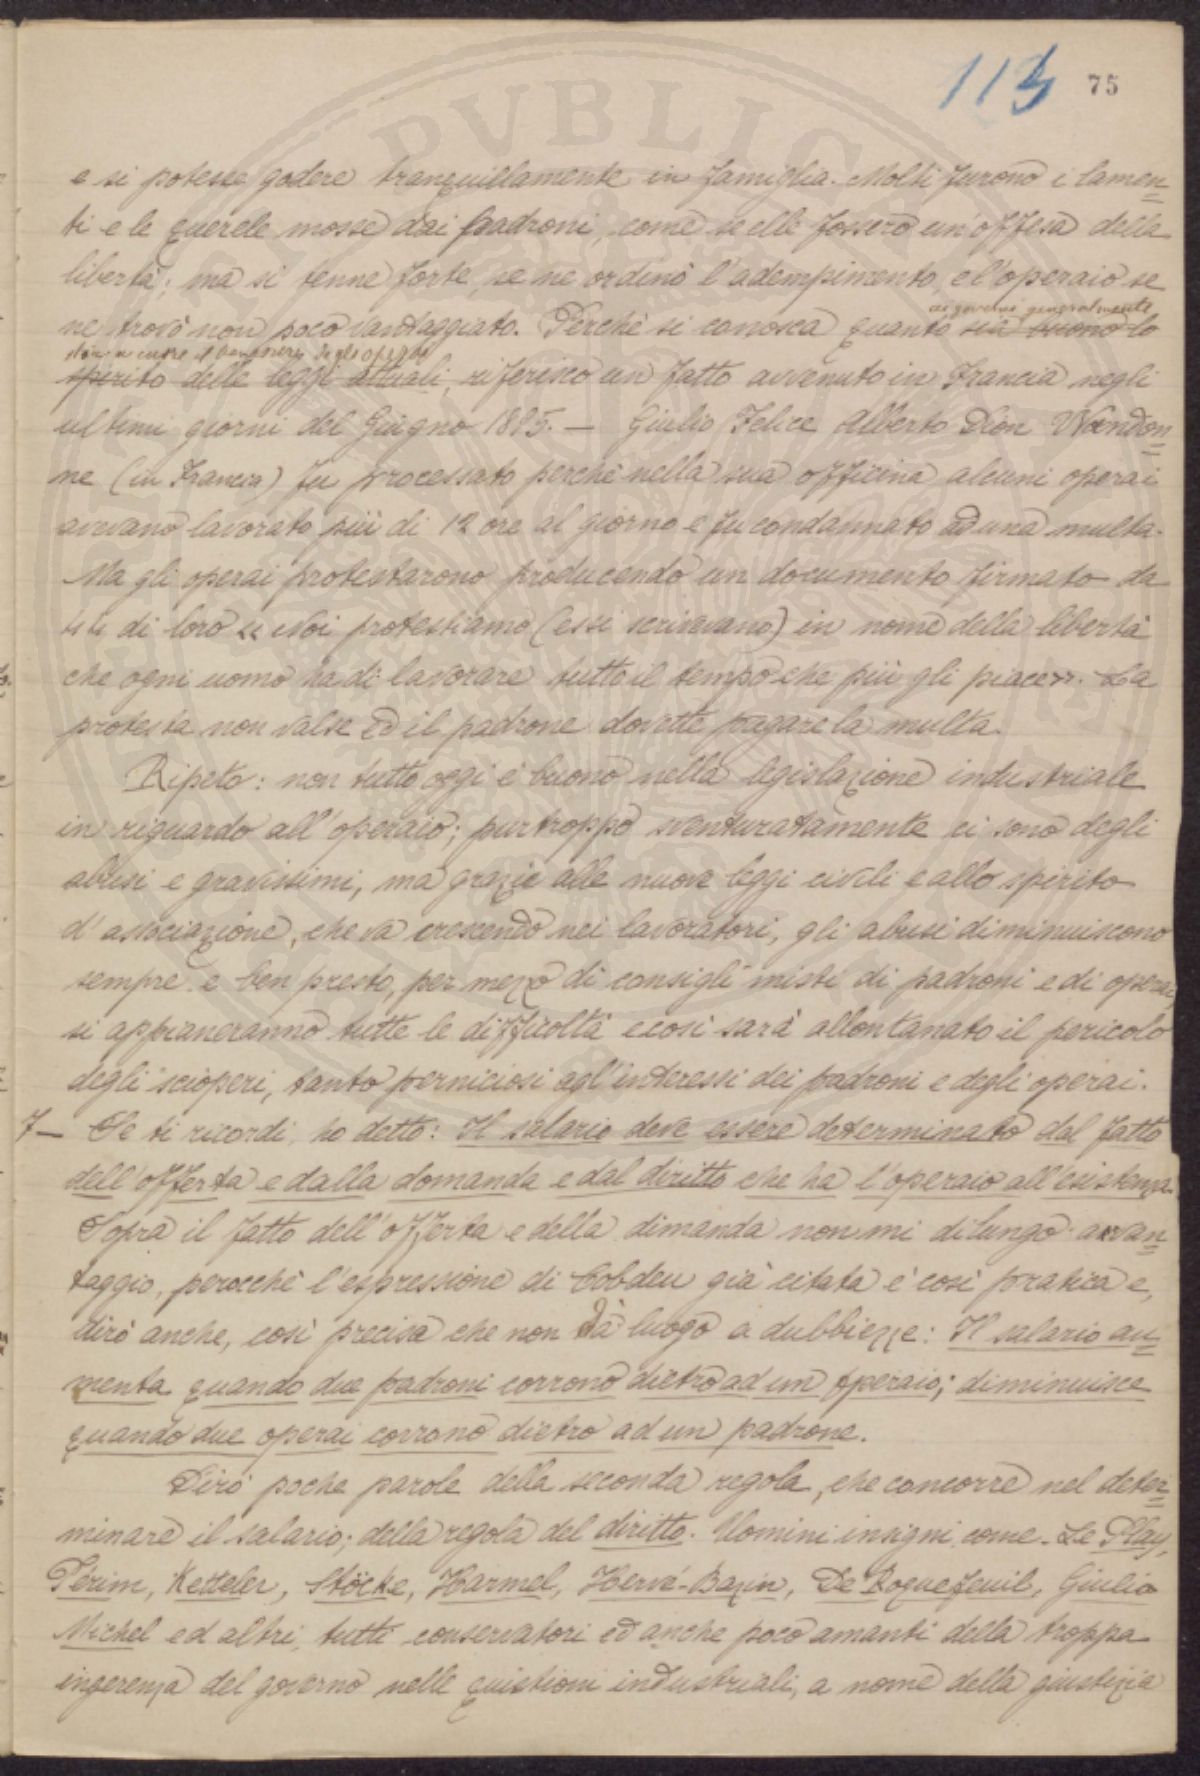 113 75
e si potesse godere tranquillamente in famiglia. Molti furono i lamen=
ti e le querele mosse dai padroni, come se elle fossero un'offesa della
libertà; ma si tenne forte, se ne ordinò l'adempimento, e l'operaio se
ai governi generalmente
ne trovò non poco vantaggiato. Perchè si conosca quanto sia buono lo
stia a cuore il benessere degli operai
spirito delle leggi attuali, riferisco un fatto avvenuto in Francia negli
ultimi giorni del Giugno 1885. — Giulio Felice Alberto Dion
ne (in Francia) fu processato perchè nella sua officina alcuni operai
avevano lavorato più di 12 ore al giorno e fu condannato ad una multa.
Ma gli operai protestarono producendo un documento firmato da
44 di loro « Noi protestiamo (essi scrivevano) in nome della libertà
che ogni uomo ha di lavorare tutto il tempo che più gli piace». La
protesta non valse ed il padrone dovette pagare la multa.
Ripeto: non tutto oggi è buono nella legislazione industriale
in riguardo all'operaio; purtroppo sventuratamente ci sono degli
abusi e gravissimi, ma grazie alle nuove leggi civili e allo spirito
d'associazione, che va crescendo nei lavoratori, gli abusi diminuiscono
sempre e ben presto, per mezzo di consigli misti di padroni e di operai,
si appianeranno tutte le difficoltà e così sarà allontanato il pericolo
degli scioperi, tanto perniciosi agl'interessi dei padroni e degli operai.
7— Se ti ricordi, ho detto: Il salario deve essere determinato dal fatto
dell'offerta e dalla domanda e dal diritto che ha l'operaio all'esistenza.
Sopra il fatto dell'offerta e della dimanda non mi dilungo avvan=
taggio, perocchè l'espressione di Cobden già citata è così pratica e,
dirò anche, così precisa che non dà luogo a dubbiezze: Il salario au=
menta quando due padroni corrono dietro ad un operaio; diminuisce
quando due operai corrono dietro ad un padrone.
Dirò poche parole della seconda regola, che concorre nel deter=
minare il salario; della regola del diritto. Uomini insigni come Le Play,
Périn, Ketteler, Stöcke, Harmel, Hervé-Bazin, De Roquefeuil, Giulio
Michel ed altri, tutti conservatori ed anche poco amanti della troppa
ingerenza del governo nelle quistioni industriali, a nome della giustizia